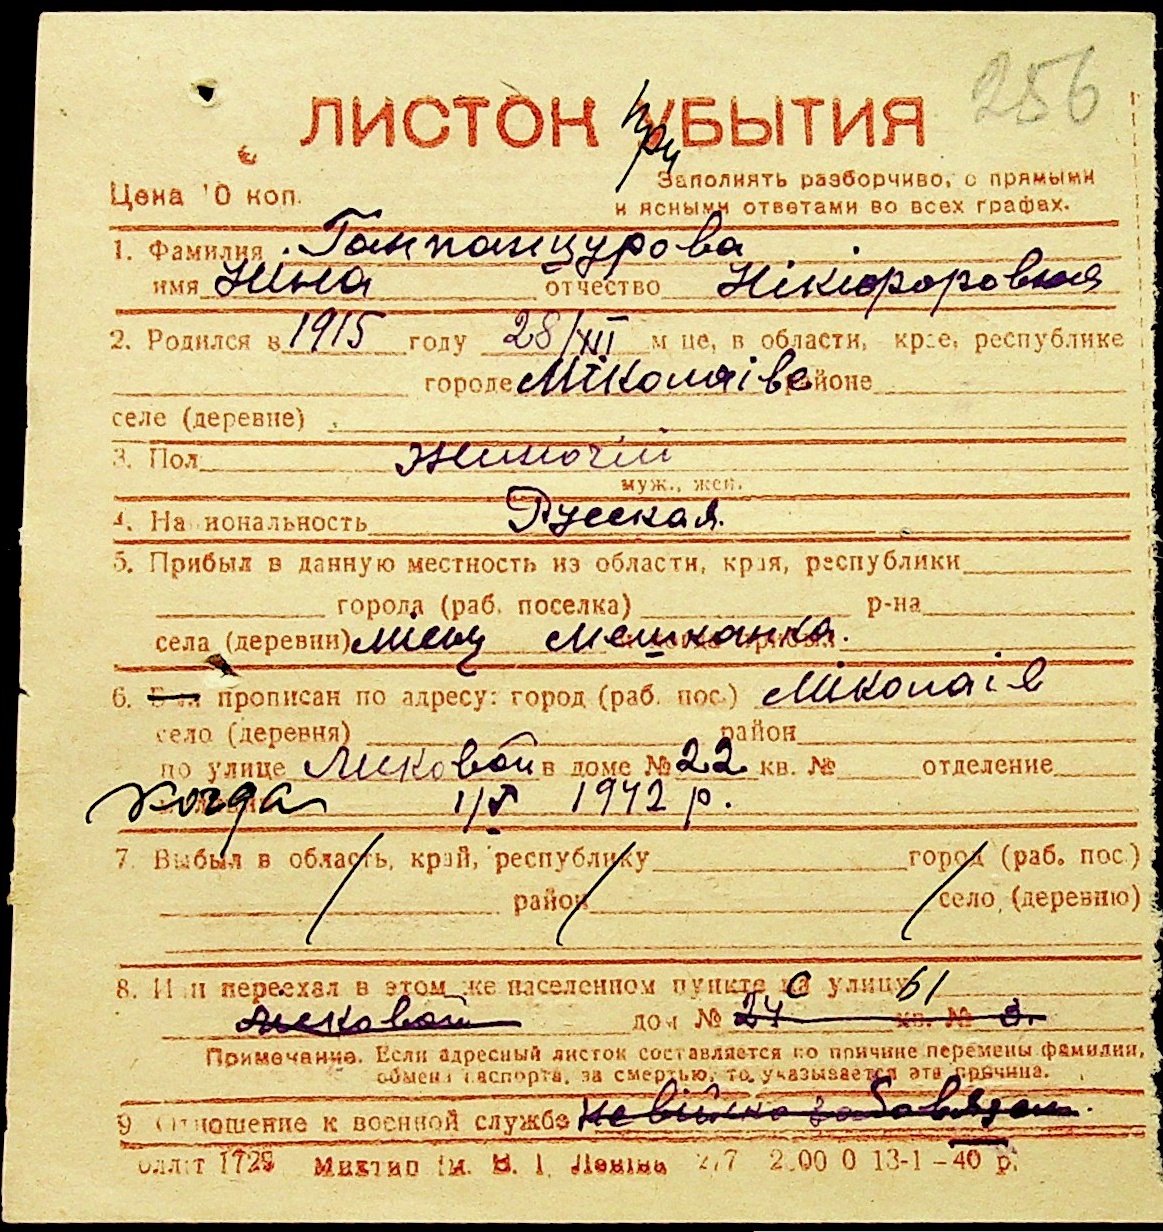 256
ЛИСТОК УБЫТИЯ
при
Цена 10 коп.
Заполнять разборчиво, с прямыми
и ясными ответами во всех графах.
1. Фамилия Ганпанцурова
имя Ніна отчество Нікіфоровная
2. Родился в 1915 году 28/XII м це, в области, крае, республике
городе Міколаіве районе
селе (деревне)
3. Пол жиночій
муж., жен.
4. Национальность Русская.
5. Прибыл в данную местность из области, края, республики
города (раб. поселка) р-на
села (деревни) місц мешканка.
6. Был прописан по адресу: город (раб. пос.) Міколаів
село (деревня) район
по улице Лисковой в доме № 22 кв. № отделение
когда 1/X 1942 р.
7. Выбыл в область, край, республику город (раб. пос.)
район село (деревню)
8. Или переехал в этом же населенном пункте на с улицу 61
Лисковой дом № 24 кв. № 3.
Примечание. Если адресный листок составляется по причине перемены фамилии,
обмена паспорта, за смертью, то указывается эта причина.
9 Отношение к военной службе не війско забовязан.
Облліт 1729 Миктип ім. В. І. Леніна 2.00 0 13-1-40 р.